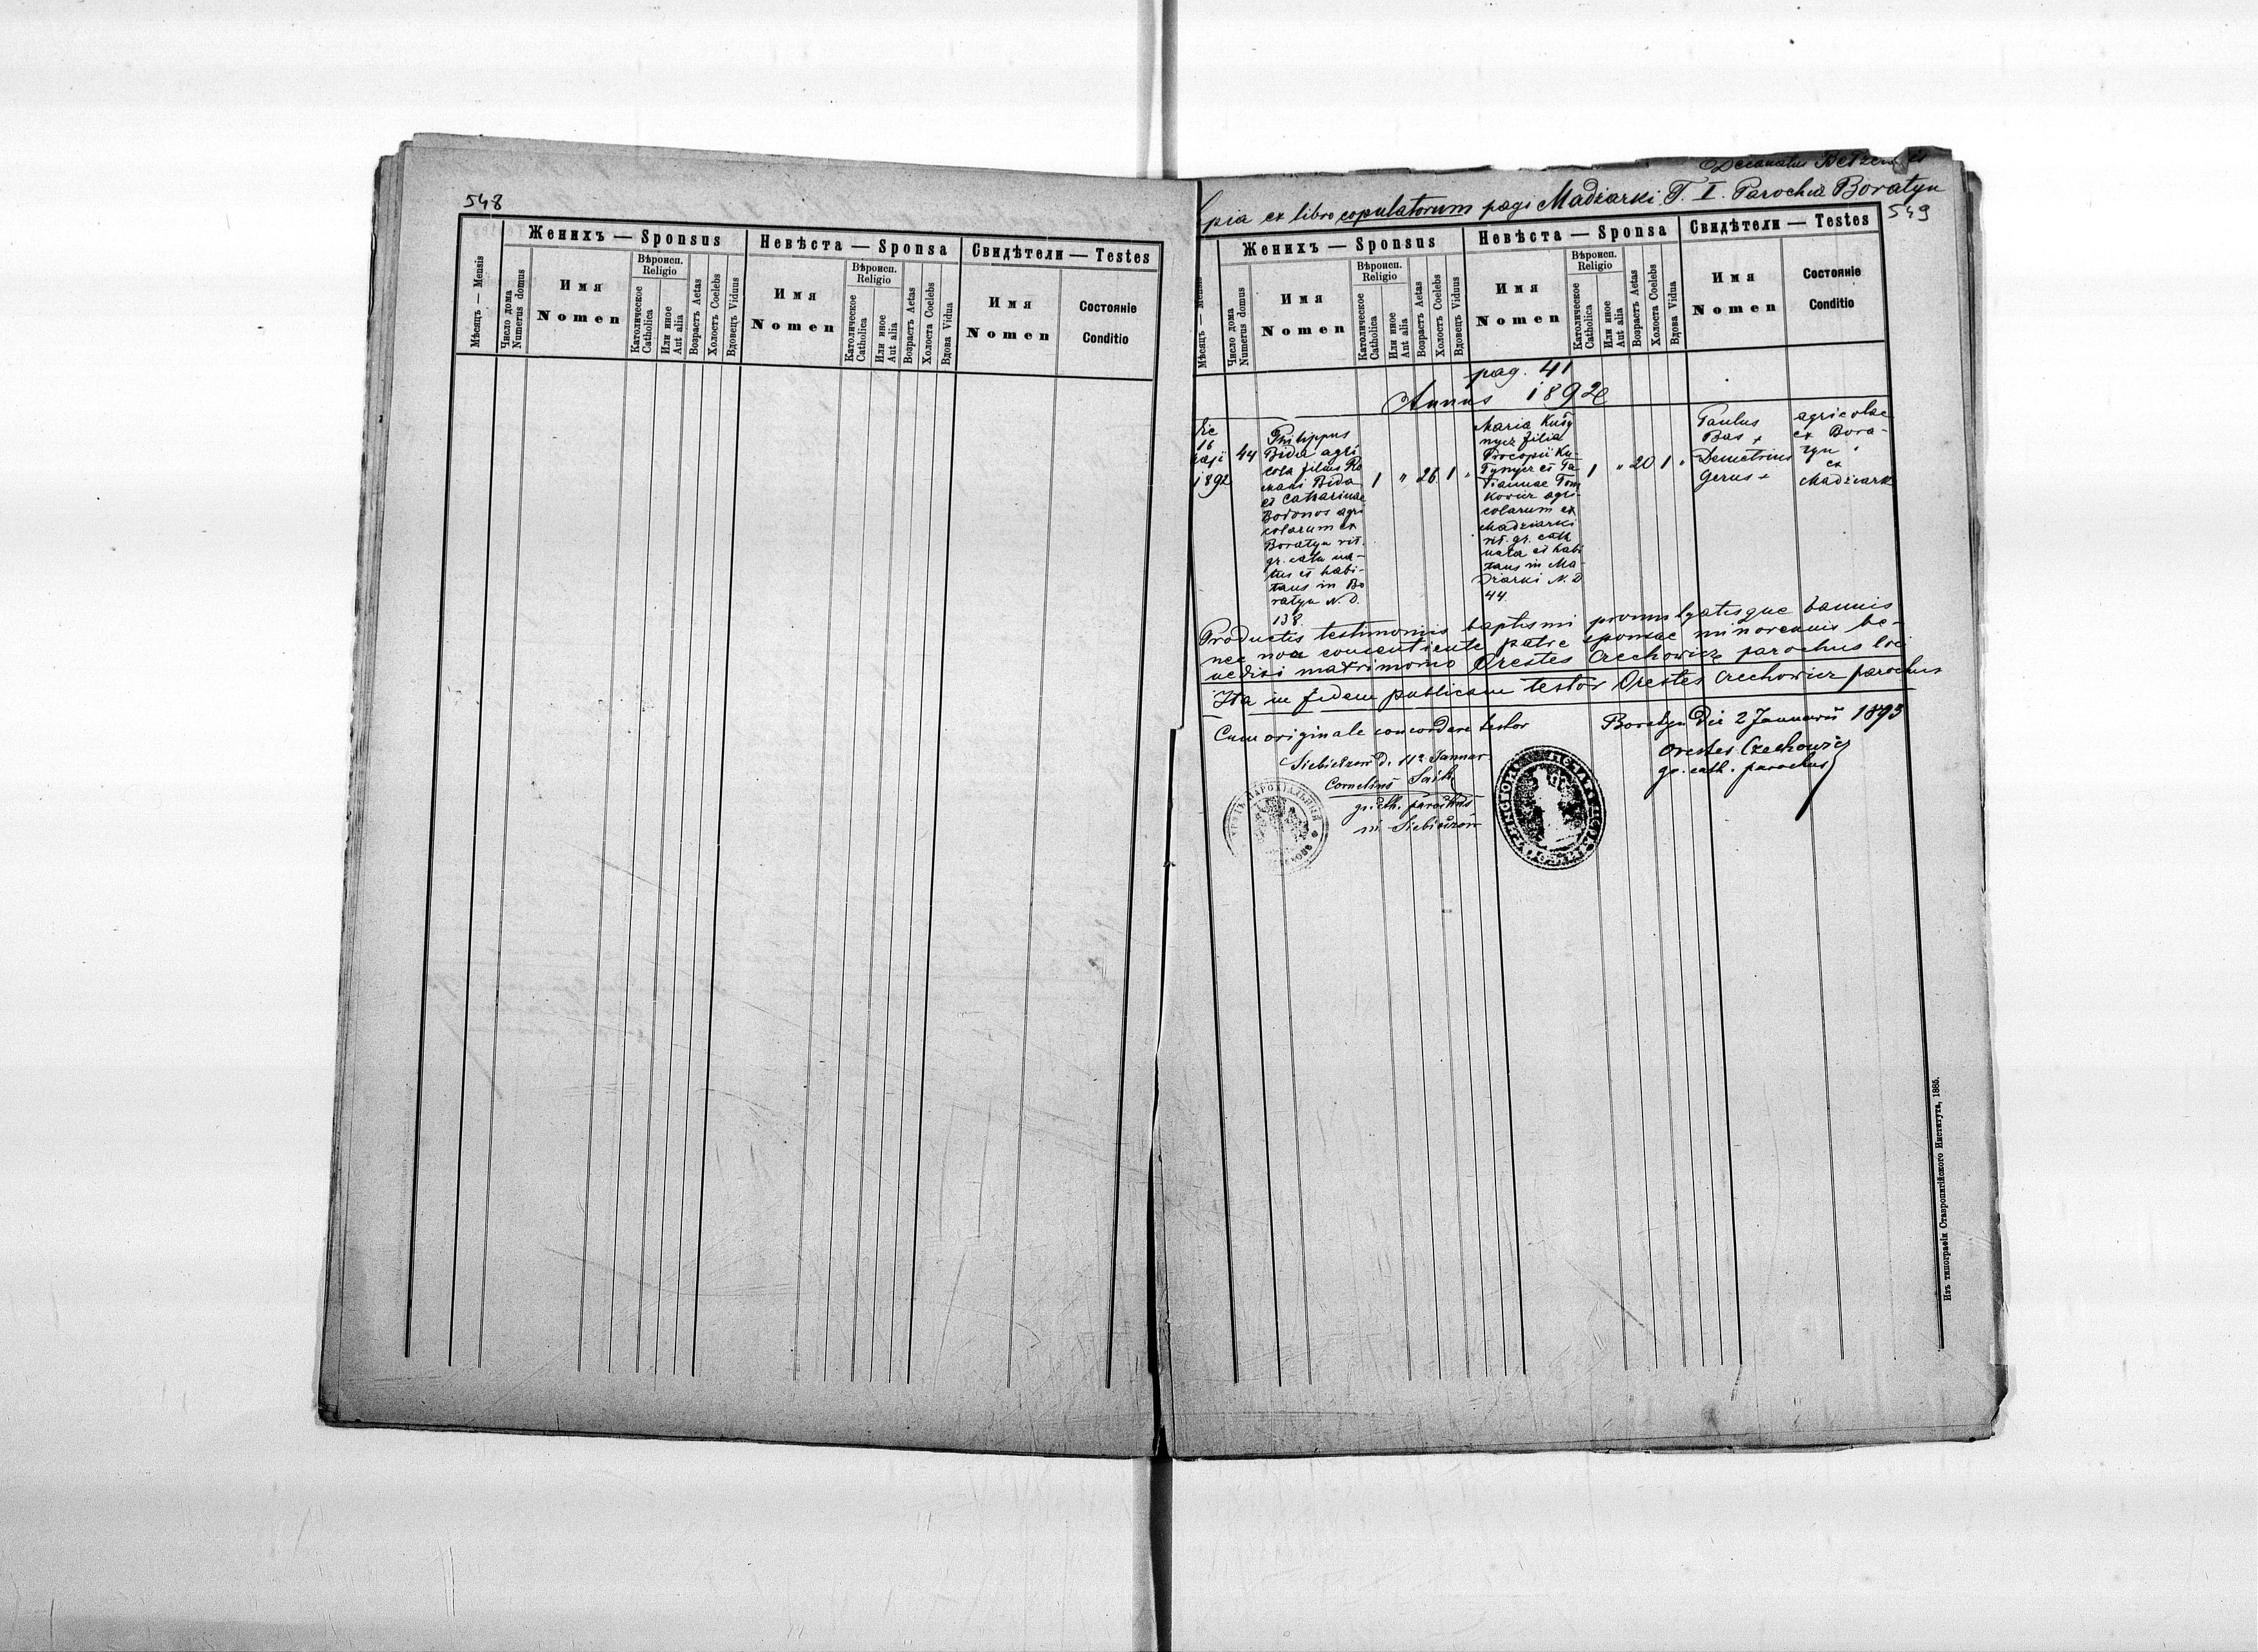 548
Женихъ — Sponsus
Невѣста — Sponsa
Свидѣтели — Testes
Мѣсяцъ — Mensis
Число дома
Numerus domus
Имя
Nomen
Вѣроисп.
Religio
Католическое
Catholica
Или иное
Aut alia
Возрастъ Aetas
Холостъ Coelebs
Вдовецъ Viduus
Имя
Nomen
Вѣроисп.
Religio
Католическое
Catholica
Или иное
Aut alia
Возрастъ Aetas
Холоста Coelebs
Вдова Vidua
Имя
Nomen
Состояніе
Conditio
Decanatus
pia ex libro copulatorum pagi Madziarki T. I. Parochia Boratyn
549
Женихъ — Sponsus
Невѣста — Sponsa
Свидѣтели — Testes
Мѣсяцъ — Mensis
Число дома
Numerus domus
Имя
Nomen
Вѣроисп.
Religio
Католическое
Catholica
Или иное
Aut alia
Возрастъ Aetas
Холостъ Coelebs
Вдовецъ Viduus
Имя
Nomen
Вѣроисп.
Religio
Католическое
Catholica
Или иное
Aut alia
Возрастъ Aetas
Холоста Coelebs
Вдова Vidua
Имя
Nomen
Состояніе
Conditio
pag. 41
Annus 1892
16
1892
44
Philippus
Bida agri
cola filius Ro
mani Bida
et Catharinae
Bodonos agri
colarum ex
Boratyn rit.
gr. cath na-
tus et habi-
tans in Bo
ratyn N. D.
138.
1 " 26 1 "
Maria Kuty
nycz filia
Procopii Ku
tynycz et Ta
tiannae Tom
kowicz agri
colarum ex
Madziarki
rit. gr. cath
nata et habi
tans in Ma
dziarki N. D
44.
1 " 20 1 "
Paulus
Bas +
Demetrius
Gerus +
agricolae
ex Bora-
tyn
ex
Madziark
Productis testimoniis baptismi promulgatisque bannis
nec non consentiente patre sponsae minorennis be-
nedixi matrimonio Orestes Czechowicz parochus loci
Ita in fidem publicam testor Orestes Czechowicz parochus
Cum originale concordare testor
Boratyn Die 2 Januarii 1893
Orestes Czechowicz
gr. cath. parochus
Siebieczow d. 11a Januar
Cornelius
gr. cth. parochus
in Siebieczów
Изъ типографіи Ставропигійского Института, 1885.